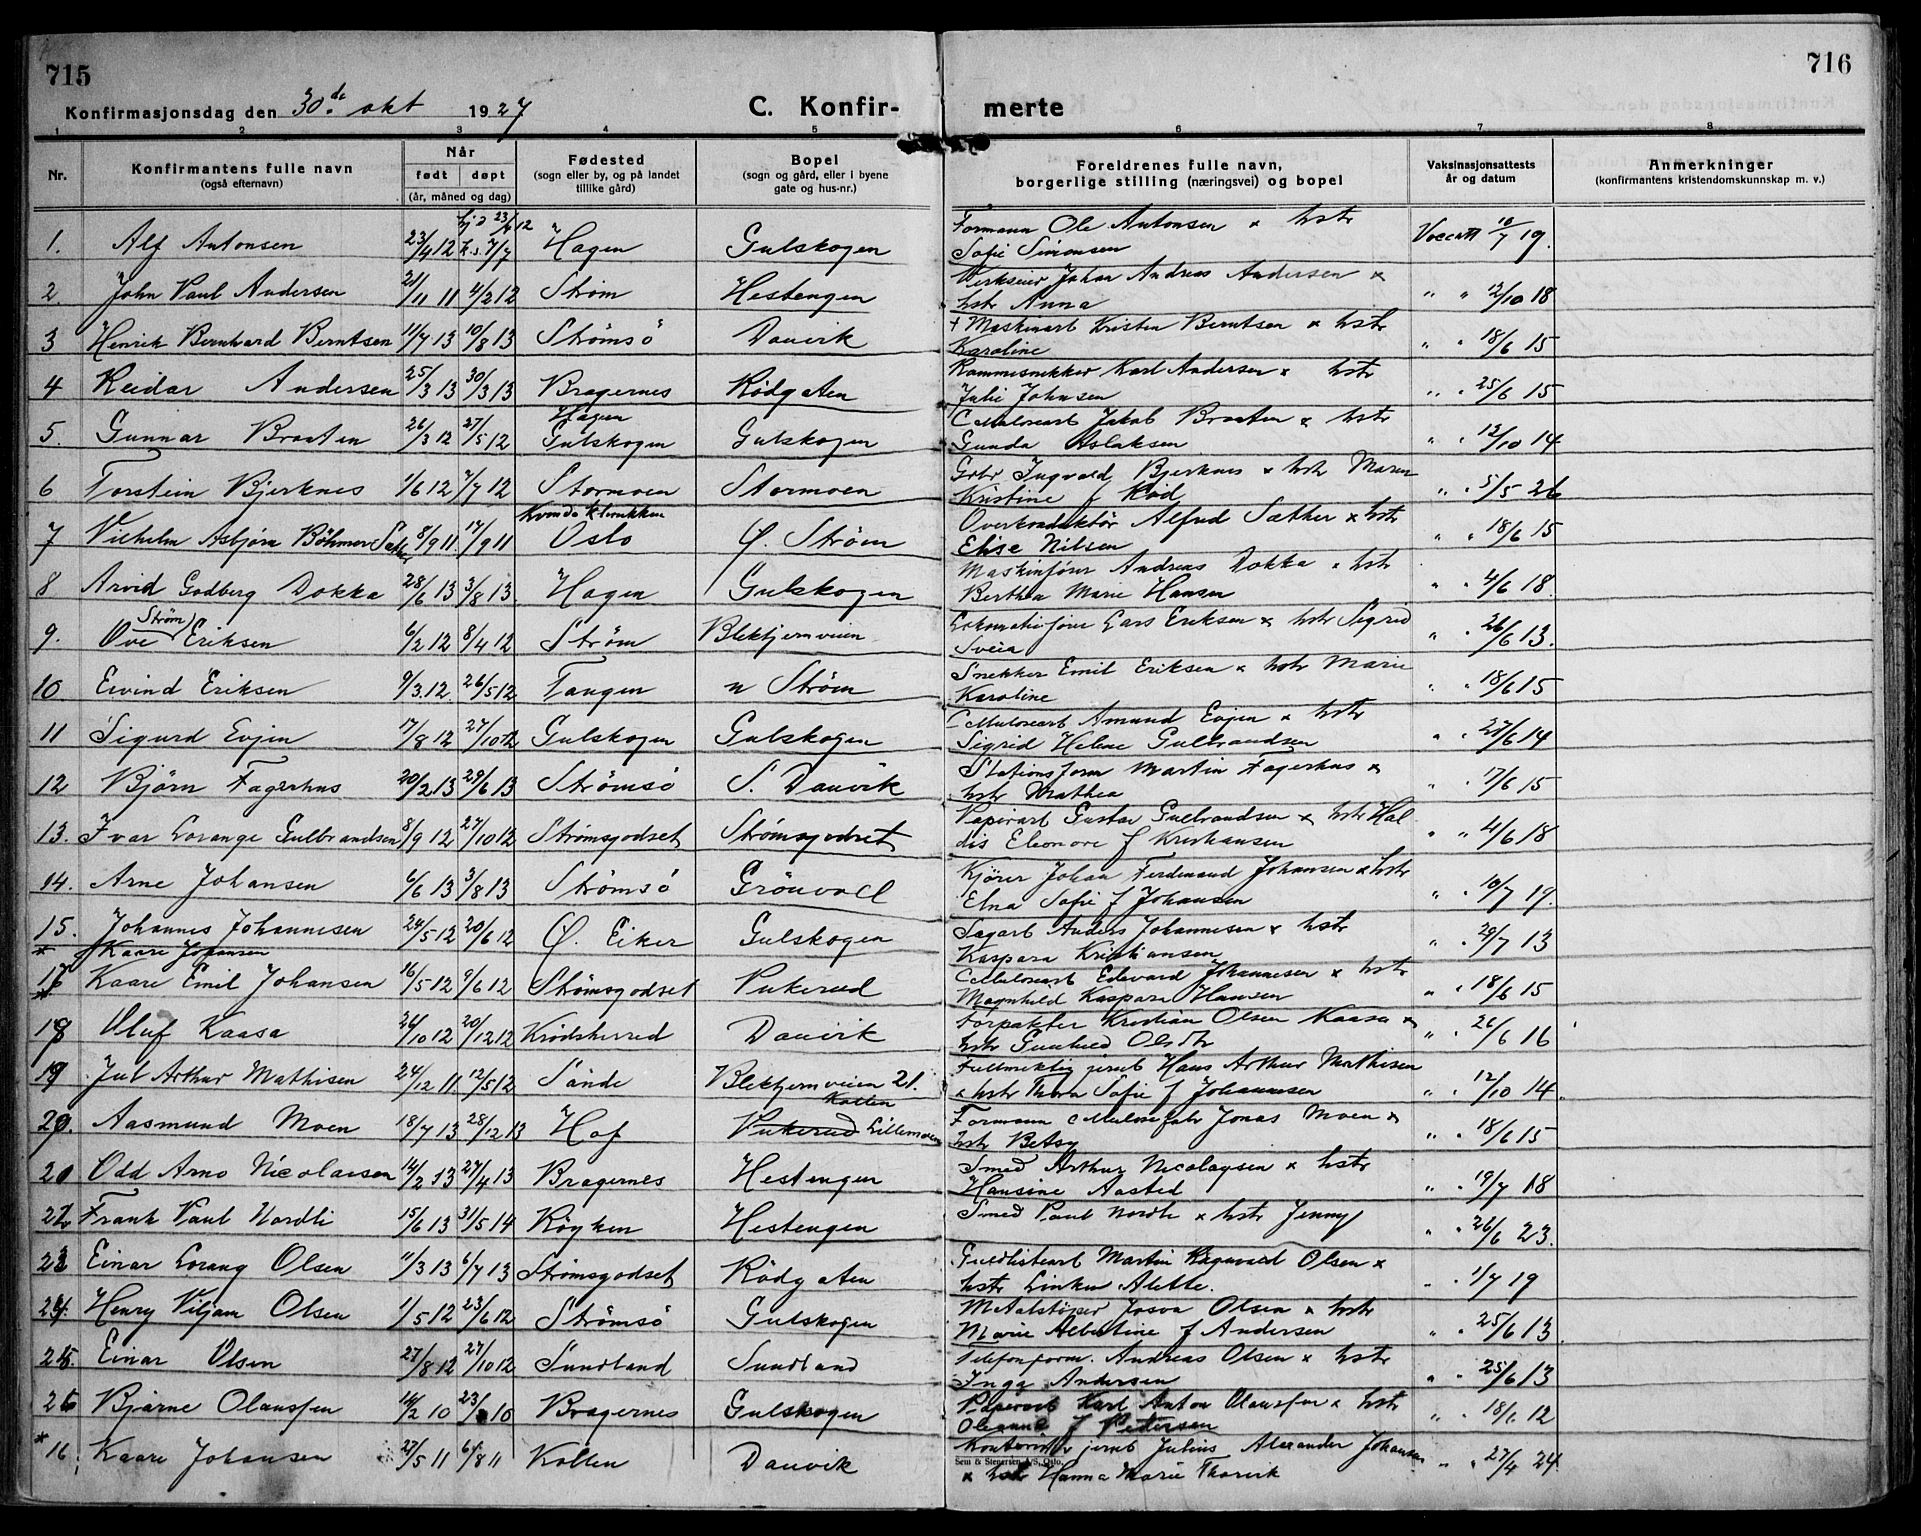 715
716
Konfirmasjonsdag den 30. de okt 1927
C. Konfir-
merte
1 2 3 4 5 6 7 8
Nr.
Konfirmantens fulle navn
(også efternavn)
Når
født døpt
(år, måned og dag)
Fødested
(sogn eller by, og på landet
tillike gård)
Bopel
(sogn og gård, eller i byene
gate og hus-nr.)
Foreldrenes fulle navn,
borgerlige stilling (næringsvei) og bopel
Vaksinasjonsattests
år og datum
Anmerkninger
(konfirmantens kristendomskunnskap m. v.)
hjd 23/4 12 Formann Ole Antonsen x hstr
1. Alf Antonsen 23/4 12 k.s. 7/7 Hagen Gulskogen Sofie Simonsen Vaccatt 10/7 19.
Verkseier Johan Andreas Andersen x
2. John Paul Andersen 21/11 11 4/2 12 Strøm Hestengen hstr Anna " " 12/10 18
+ Maskinarb Kristen Berntsen x hstr
3 Henrik Bernhard Berntsen 11/7 13 10/8 13 Strømsö Danvik Karoline " " 18/6 15
Rammesnekker Karl Andersen x hstr
4 Reidar Andersen 25/3 13 30/3 13 Bragernes Rödgaten Julie Johnsen " " 25/6 15
Hagen Cellulosearb Jakob Braaten x hstr
5. Gunnar Braaten 26/3 12 27/5 12 Gulskogen Gulskogen Gunda Aslaksen " " 12/10 14
Gbr Ingvald Bjerknes x hstr Maren
6 Torstein Bjerknes 1/6 12 7/7 12 Stormoen Stormoen Kristine f Röd " " 5/5 26
Overkonduktör Alfred Sæther x hstr
7 Vilhelm Asbjørn Böhmer Sæther 8/9 11 17/9 11 Oslo Ö. Strøm Elise Nilsen " " 18/6 15
Maskinfører Andreas Dokka x hstr
8 Arvid Godberg Dokka 28/6 13 3/8 13. Hagen Gulskogen Berthea Marie Hansen " " 4/6 18.
Strøm Lokomotivfører Lars Eriksen x hstr Sigrid
9. Ove Eriksen 6/2 12 8/4 12 Strøm Blekhjernveien Sveia " " 26/6 13.
Snekker Emil Eriksen x hstr Marie
10 Eivind Eriksen 9/3.12. 26/5 12 Tangen n Strøm Karoline " " 18/6 15
Cellulosearb Amund Evjen x hstr
11 Sigurd Evjen 17/8 12 27/10 12 Gulskogen Gulskogen Sigrid Helene Gulbrandsen " " 27/6 14
Stationsform Martin Fagerhus x
12 Bjørn Fagerhus 20/2 13 29/6 13 Strömsö S. Danvik hstr Mathea " " 17/6 15
Papirarb Gustav Gulbrandsen x hstr Hal
13. Ivar Lorange Gulbrandsen 8/9 12 27/10 12 Strømsgodset Strømsgodset dis Eleonore f Kristiansen " " 4/6 18
Kjører Johan Ferdinand Johansen x hstr
14. Arne Johansen 6/6 13 3/8 13 Strømsö Grönvoll Elna Sofie f Johansen " " 10/7 19.
Sagarb Anders Johannesen x hstr
15. Johannes Johannesen 24/5 12 20/6 12 Ö. Eiker Gulskogen Kaspara Kristiansen " " 29/7 13
* Kaare Johansen Cellulosearb Edevard Johannesen x hstr
17 Kaare Emil Johansen 16/5 12 9/6 12 Strömsgodset Pukerud Magnhild Kaspara Hansen " " 18/6 15
Forpakter Kristian Olsen Kaasa x
18 Oluf Kaasa 26/10 12 20/12 12 Krödsherred Danvik hstr Gunhild " " 26/6 16
Fullmektig jernb Hans Arthur Mathisen
19 Jul Arthur Mathisen 24/12 11 12/5 12 Sande Blekhjernveien 21. x hstr Thora Sofie f Johannesen " " 12/10 14.
Kollen Formann Cellulosefabr Jonas Moen x
20. Aasmund Moen 18/7 13 28/12 13 Hof Pukerud Lillemoen hstr Betsy " " 18/6 15
Smed Arthur Nicolaysen x hstr
20 Odd Arno Nicolaisen 14/2 13 27/4 13 Bragernes Hestengen Hansine Aasted " " 19/7 18
22 Frank Paul Nordli 15/6 13 31/5 14 Röyken Hestengen Smed Paul Nordli x hstr Jenny " " 26/6 23.
Guldlistearb Martin Ragnvald Olsen x
23 Einar Lorang Olsen 11/3 13 6/7 13 Strömsgodset Rödgaten hstr Linken Alette. " 1/7 19
Metalstøper Josva Olsen x hstr
24. Henry Viljam Olsen 1/5 12 23/6 12 Strömsö Gulskogen Marie Albertine f Andersen " " 25/6 13.
Telefonform. Andreas Olsen x hstr
25. Einar Olsen 27/8 12 27/10 12 Sundland Sundland Inga Andersen " " 25/6 13
Papirarb Karl Anton Olaussen x hstr
26 Bjarne Olaussen 14/2 10 23/ 10 Bragernes Gulskogen f Petersen " " 18/6 12
Kontorist jernb Julius Alexander Johansen
* 16 Kaare Johansen 27/5 11 6/8 11 Kollen Danvik x hstr Hanna Marie Thorvik " " 27/4 24.
Sem & Stenersen A/S, Oslo.